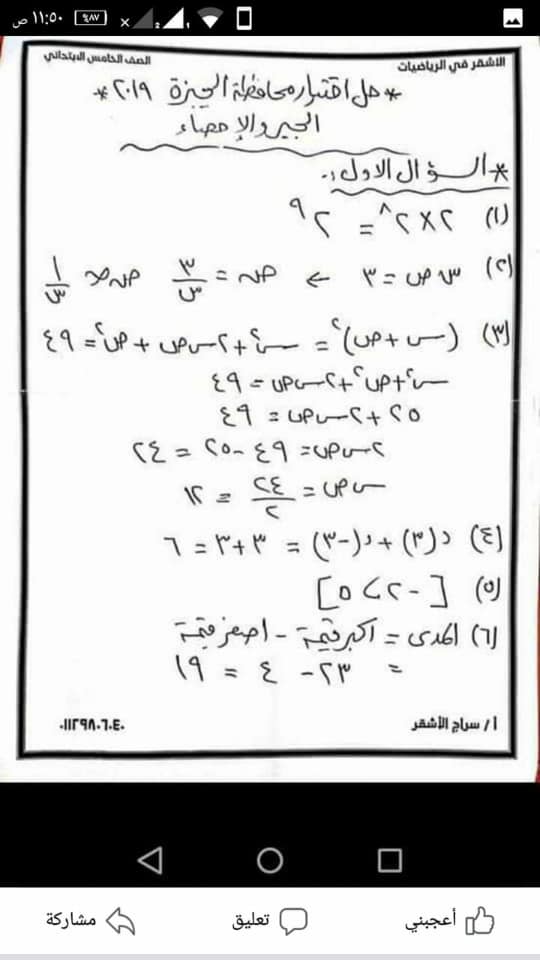 ١١:٥٠ ص
٨٧%
الأشقر في الرياضيات
الصف الخامس الابتدائي
* حل اختبار محافظة الجيزة ٢٠١٩ *
الجبر والإحصاء
* السؤال الاول :-
(١) ٢ × ٢^٨ = ٢^٩
(٢) س ص = ٣ ← ص = ٣/س ص ∝ ١/س
(٣) (س + ص)^٢ = س^٢ + ٢س ص + ص^٢ = ٤٩
س^٢ + ص^٢ + ٢س ص = ٤٩
٢٥ + ٢س ص = ٤٩
٢س ص = ٤٩ - ٢٥ = ٢٤
س ص = ٢٤/٢ = ١٢
(٤) د(٣) + د(-٣) = ٣ + ٣ = ٦
(٥) [-٢ ، ٥]
(٦) المدى = اكبر قيمة - اصغر قيمة
= ٢٣ - ٤ = ١٩
أ/ سراج الأشقر
٠١١٢٩٨٠٦٠٤٠
أعجبني
تعليق
مشاركة